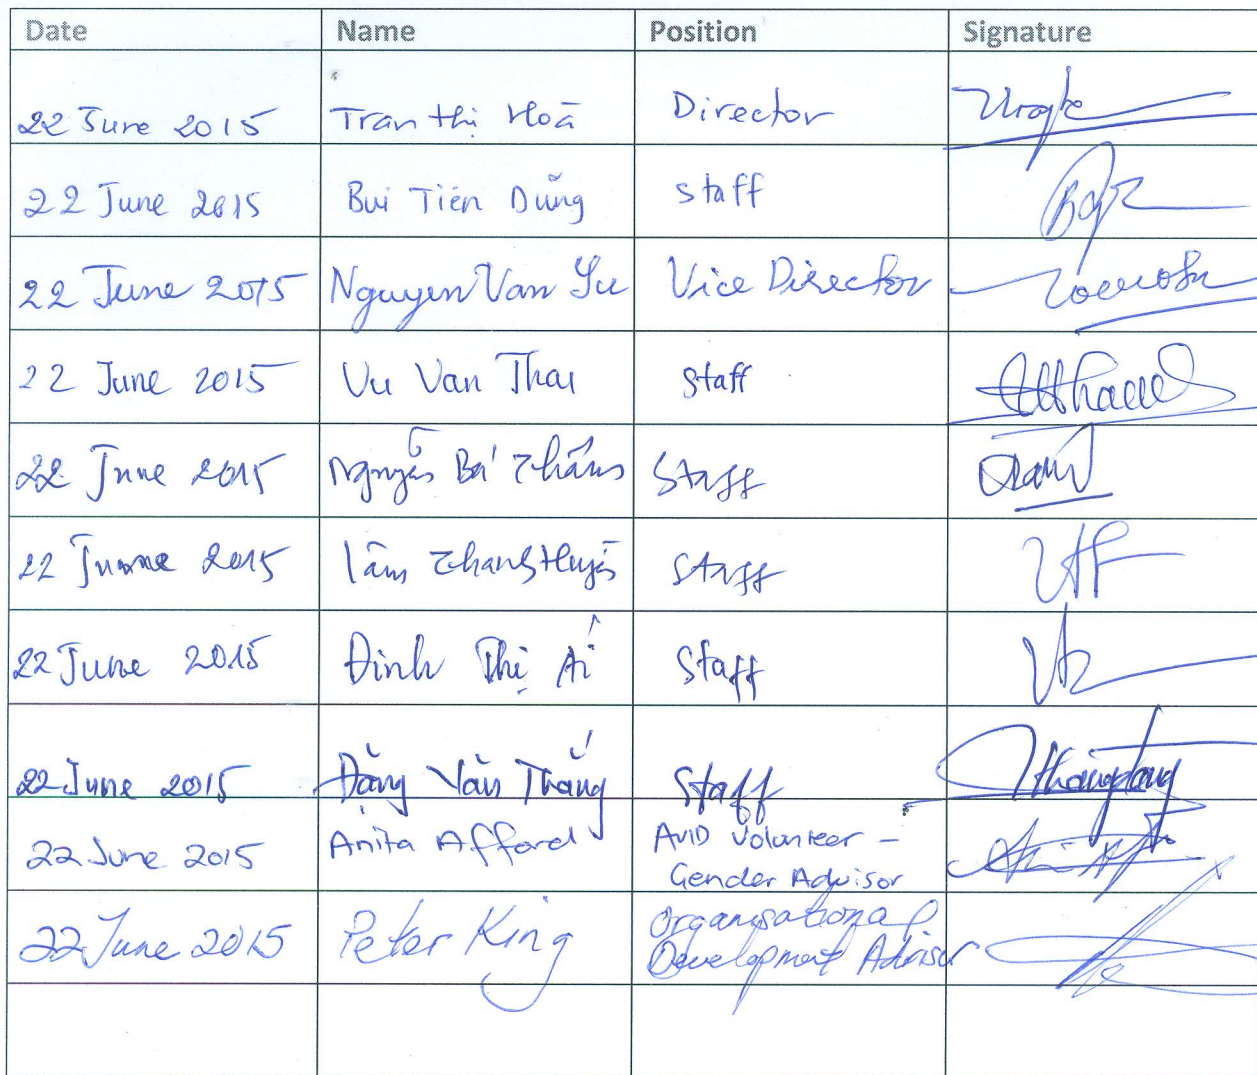 Date Name Position Signature
22 June 2015 Tran thị Hoā Director
22 June 2015 Bui Tiến Dũng staff
22 June 2015 Nguyen Van Su Vice Director
22 June 2015 Vu Van Thai staff
22 June 2015 Nguyễn Bá Thắng Staff
22 June 2015 Lâm Staff
22 June 2015 Đinh Thị Ái Staff
22 June 2015 Đặng Văn Thắng Staff
22 June 2015 Anita Afford AVID Volunteer –
Gender Advisor
22 June 2015 Peter King Organisational
Development Advisor